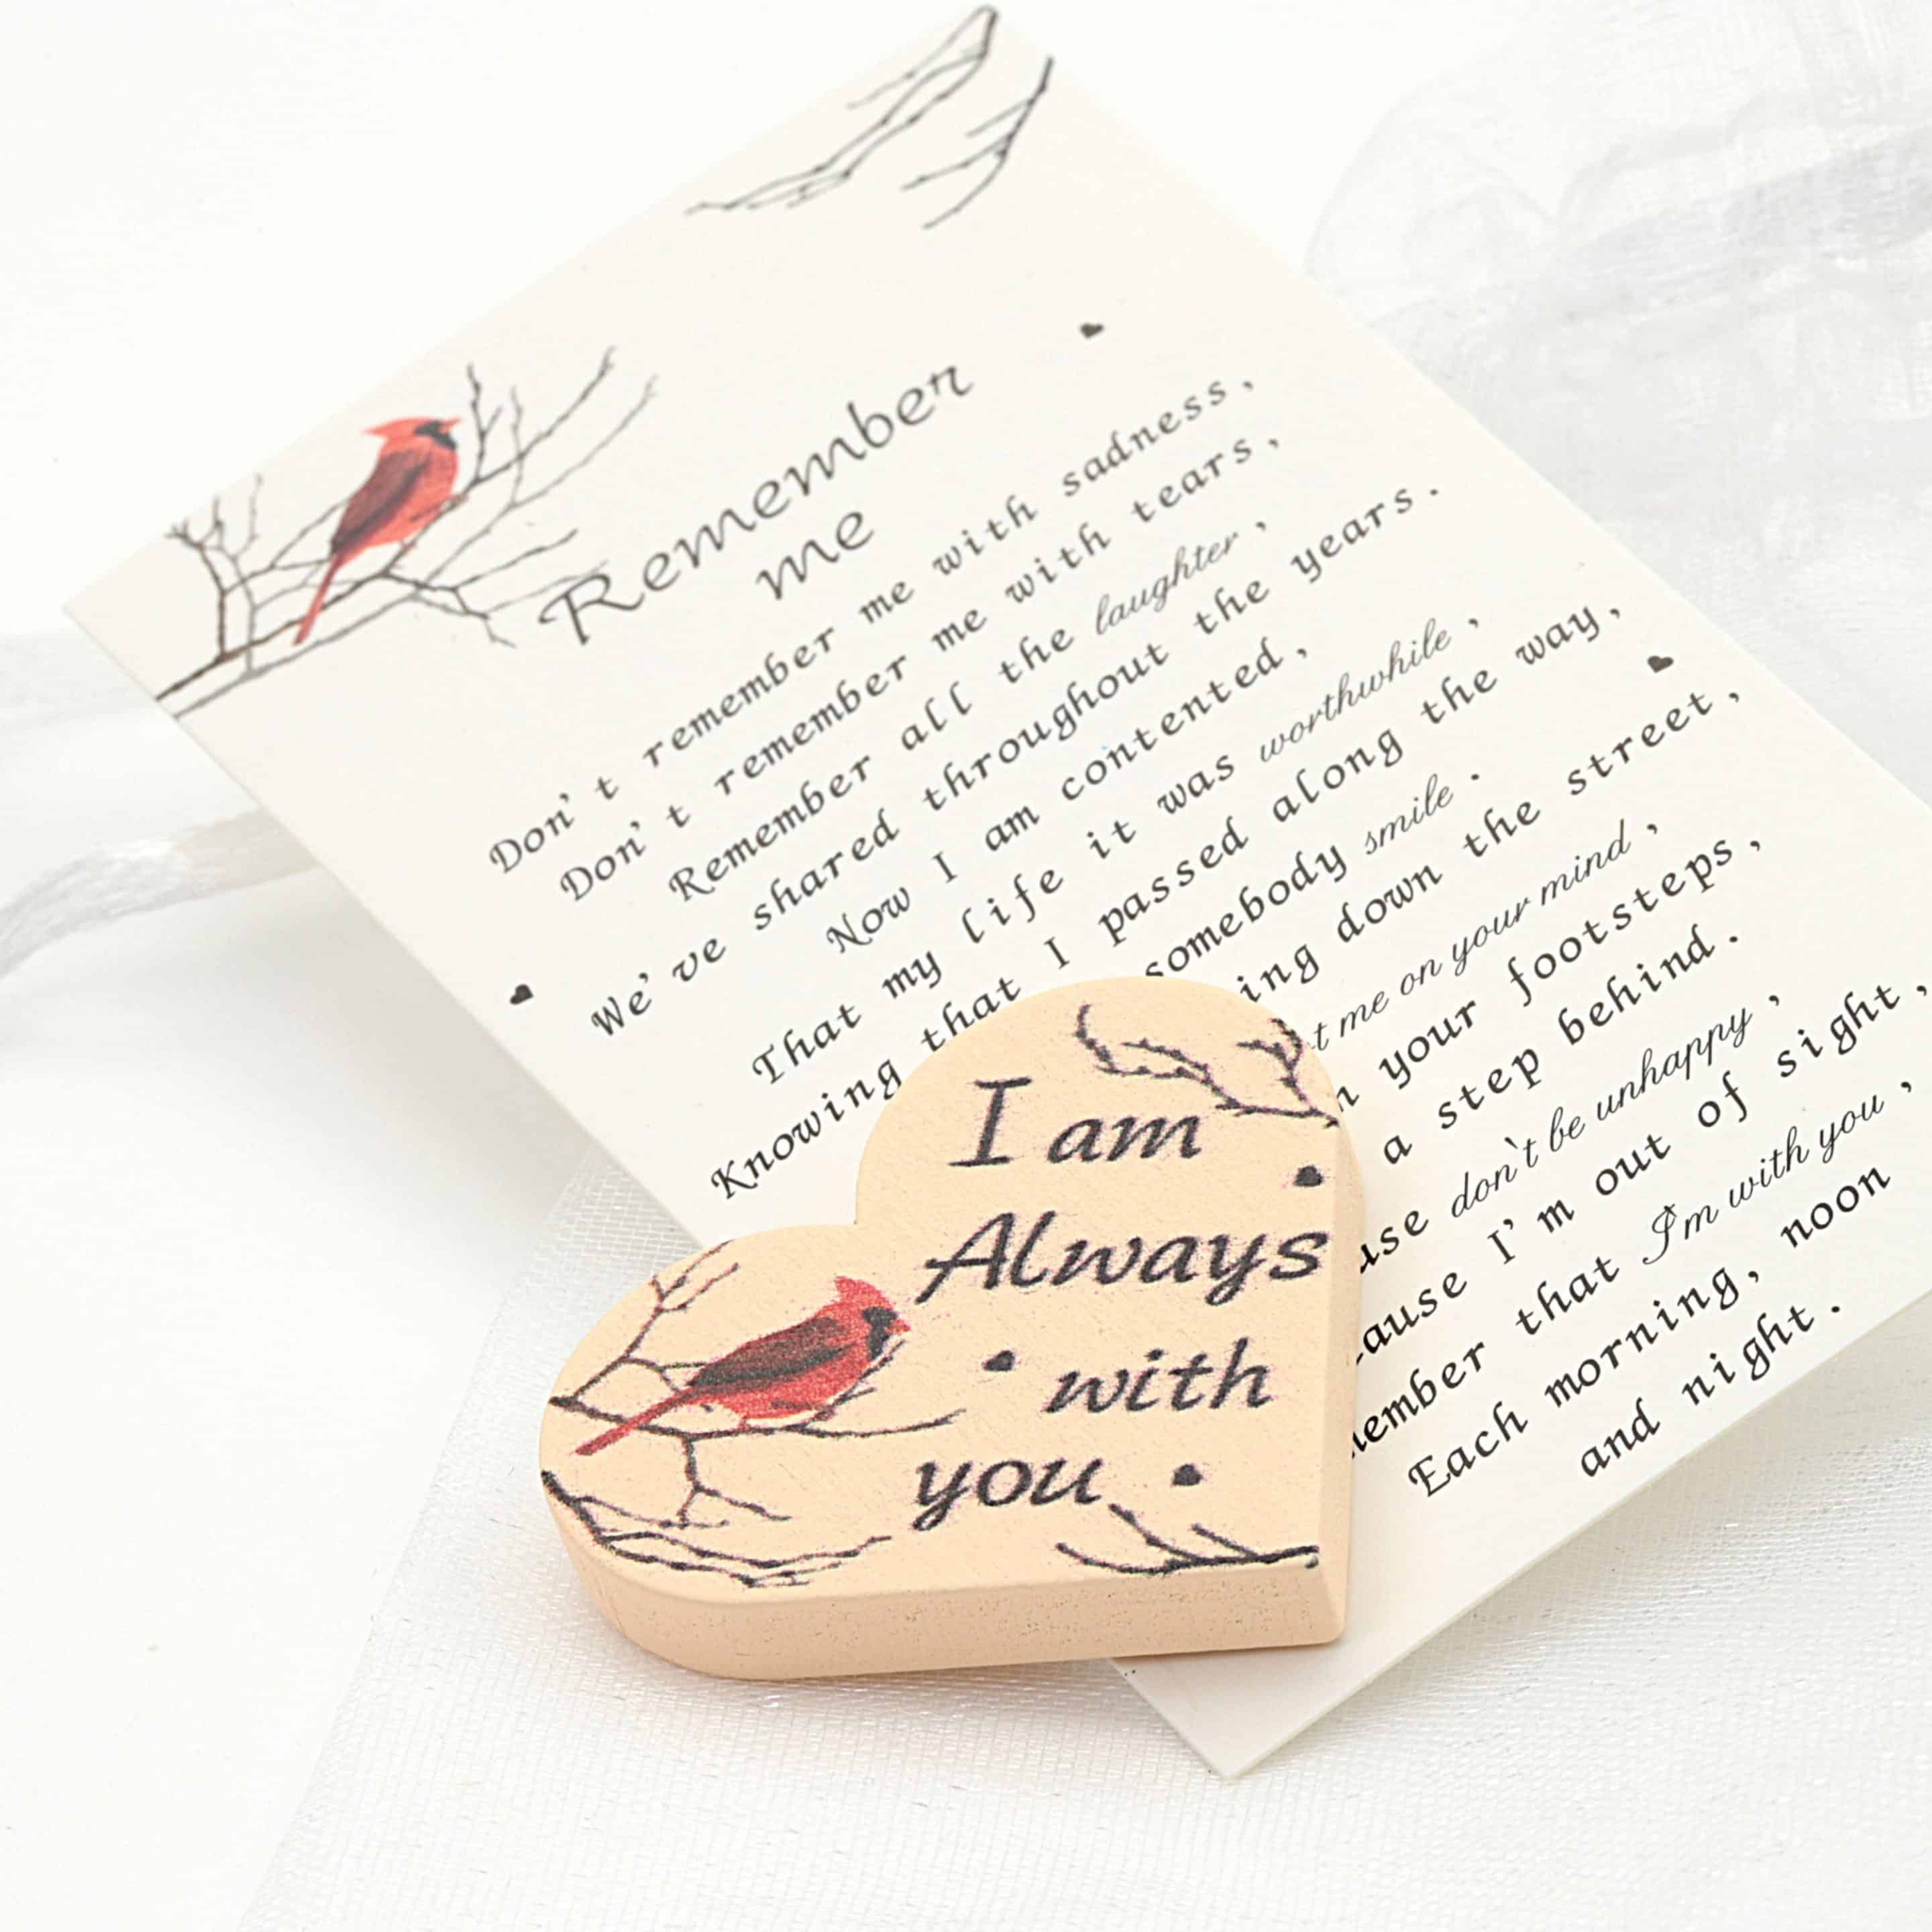 Remember
me
Don't remember me with sadness,
Don't remember me with tears,
Remember all the laughter,
We've shared throughout the years.
Now I am contented,
That my life it was worthwhile,
Knowing that I passed along the way,
somebody smile.
down the street,
me on your mind,
your footsteps,
a step behind.
don't be unhappy,
I'm out of sight,
that I'm with you,
Each morning, noon
and night.
I am
Always
with
you